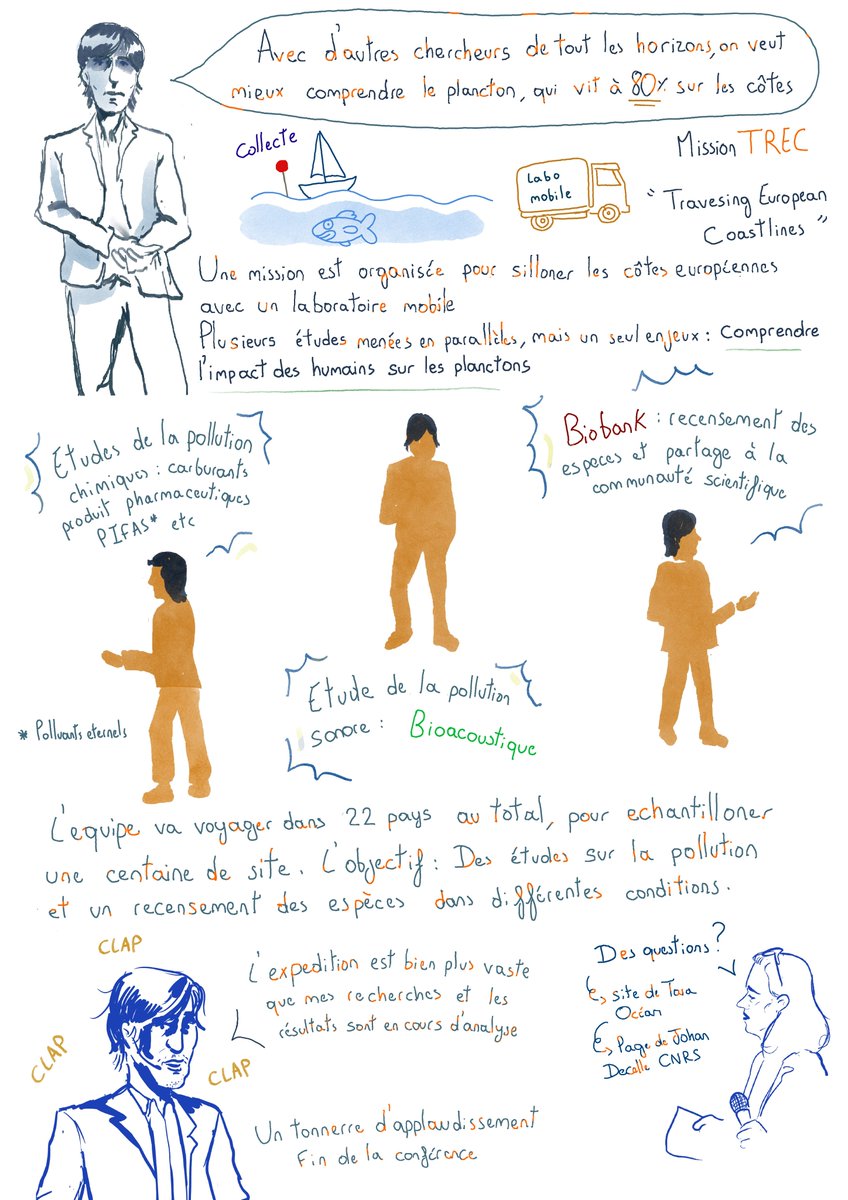 Avec d'autres chercheurs de tout les horizons, on veut
mieux comprendre le plancton, qui vit à 80% sur les côtes
Collecte
Labo
mobile
Mission TREC
"Travesing European
Coastlines"
Une mission est organisée pour silloner les côtes européennes
avec un laboratoire mobile
Plusieurs études menées en parallèles, mais un seul enjeux : Comprendre
l'impact des humains sur les planctons
Etudes de la pollution
chimiques : carburants
produit pharmaceutiques
PIFAS* etc
Biobank : recensement des
especes et partage à la
communauté scientifique
* Polluants eternels
Etude de la pollution
sonore : Bioacoustique
L'equipe va voyager dans 22 pays au total, pour echantilloner
une centaine de site. L'objectif : Des études sur la pollution
et un recensement des espèces dans différentes conditions.
CLAP
CLAP
CLAP
L'expedition est bien plus vaste
que mes recherches et les
résultats sont en cours d'analyse
Des questions ?
site de Tara
Océan
Page de Johan
Decelle CNRS
Un tonnerre d'applaudissement
Fin de la conférence